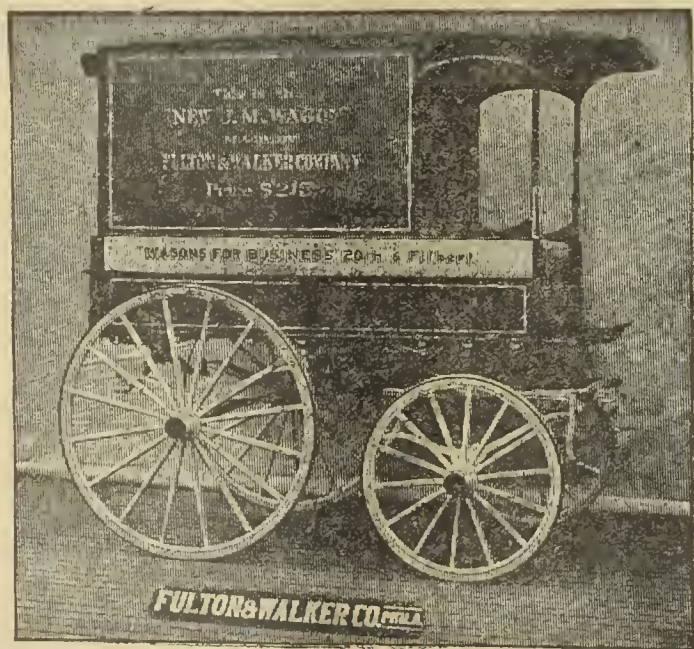 This is the
"NEW J.M. WAGON"
FULTON & WALKER COMPANY
Price $215
"WAGONS FOR BUSINESS" 20th & Filbert
FULTON & WALKER CO. PHILA.